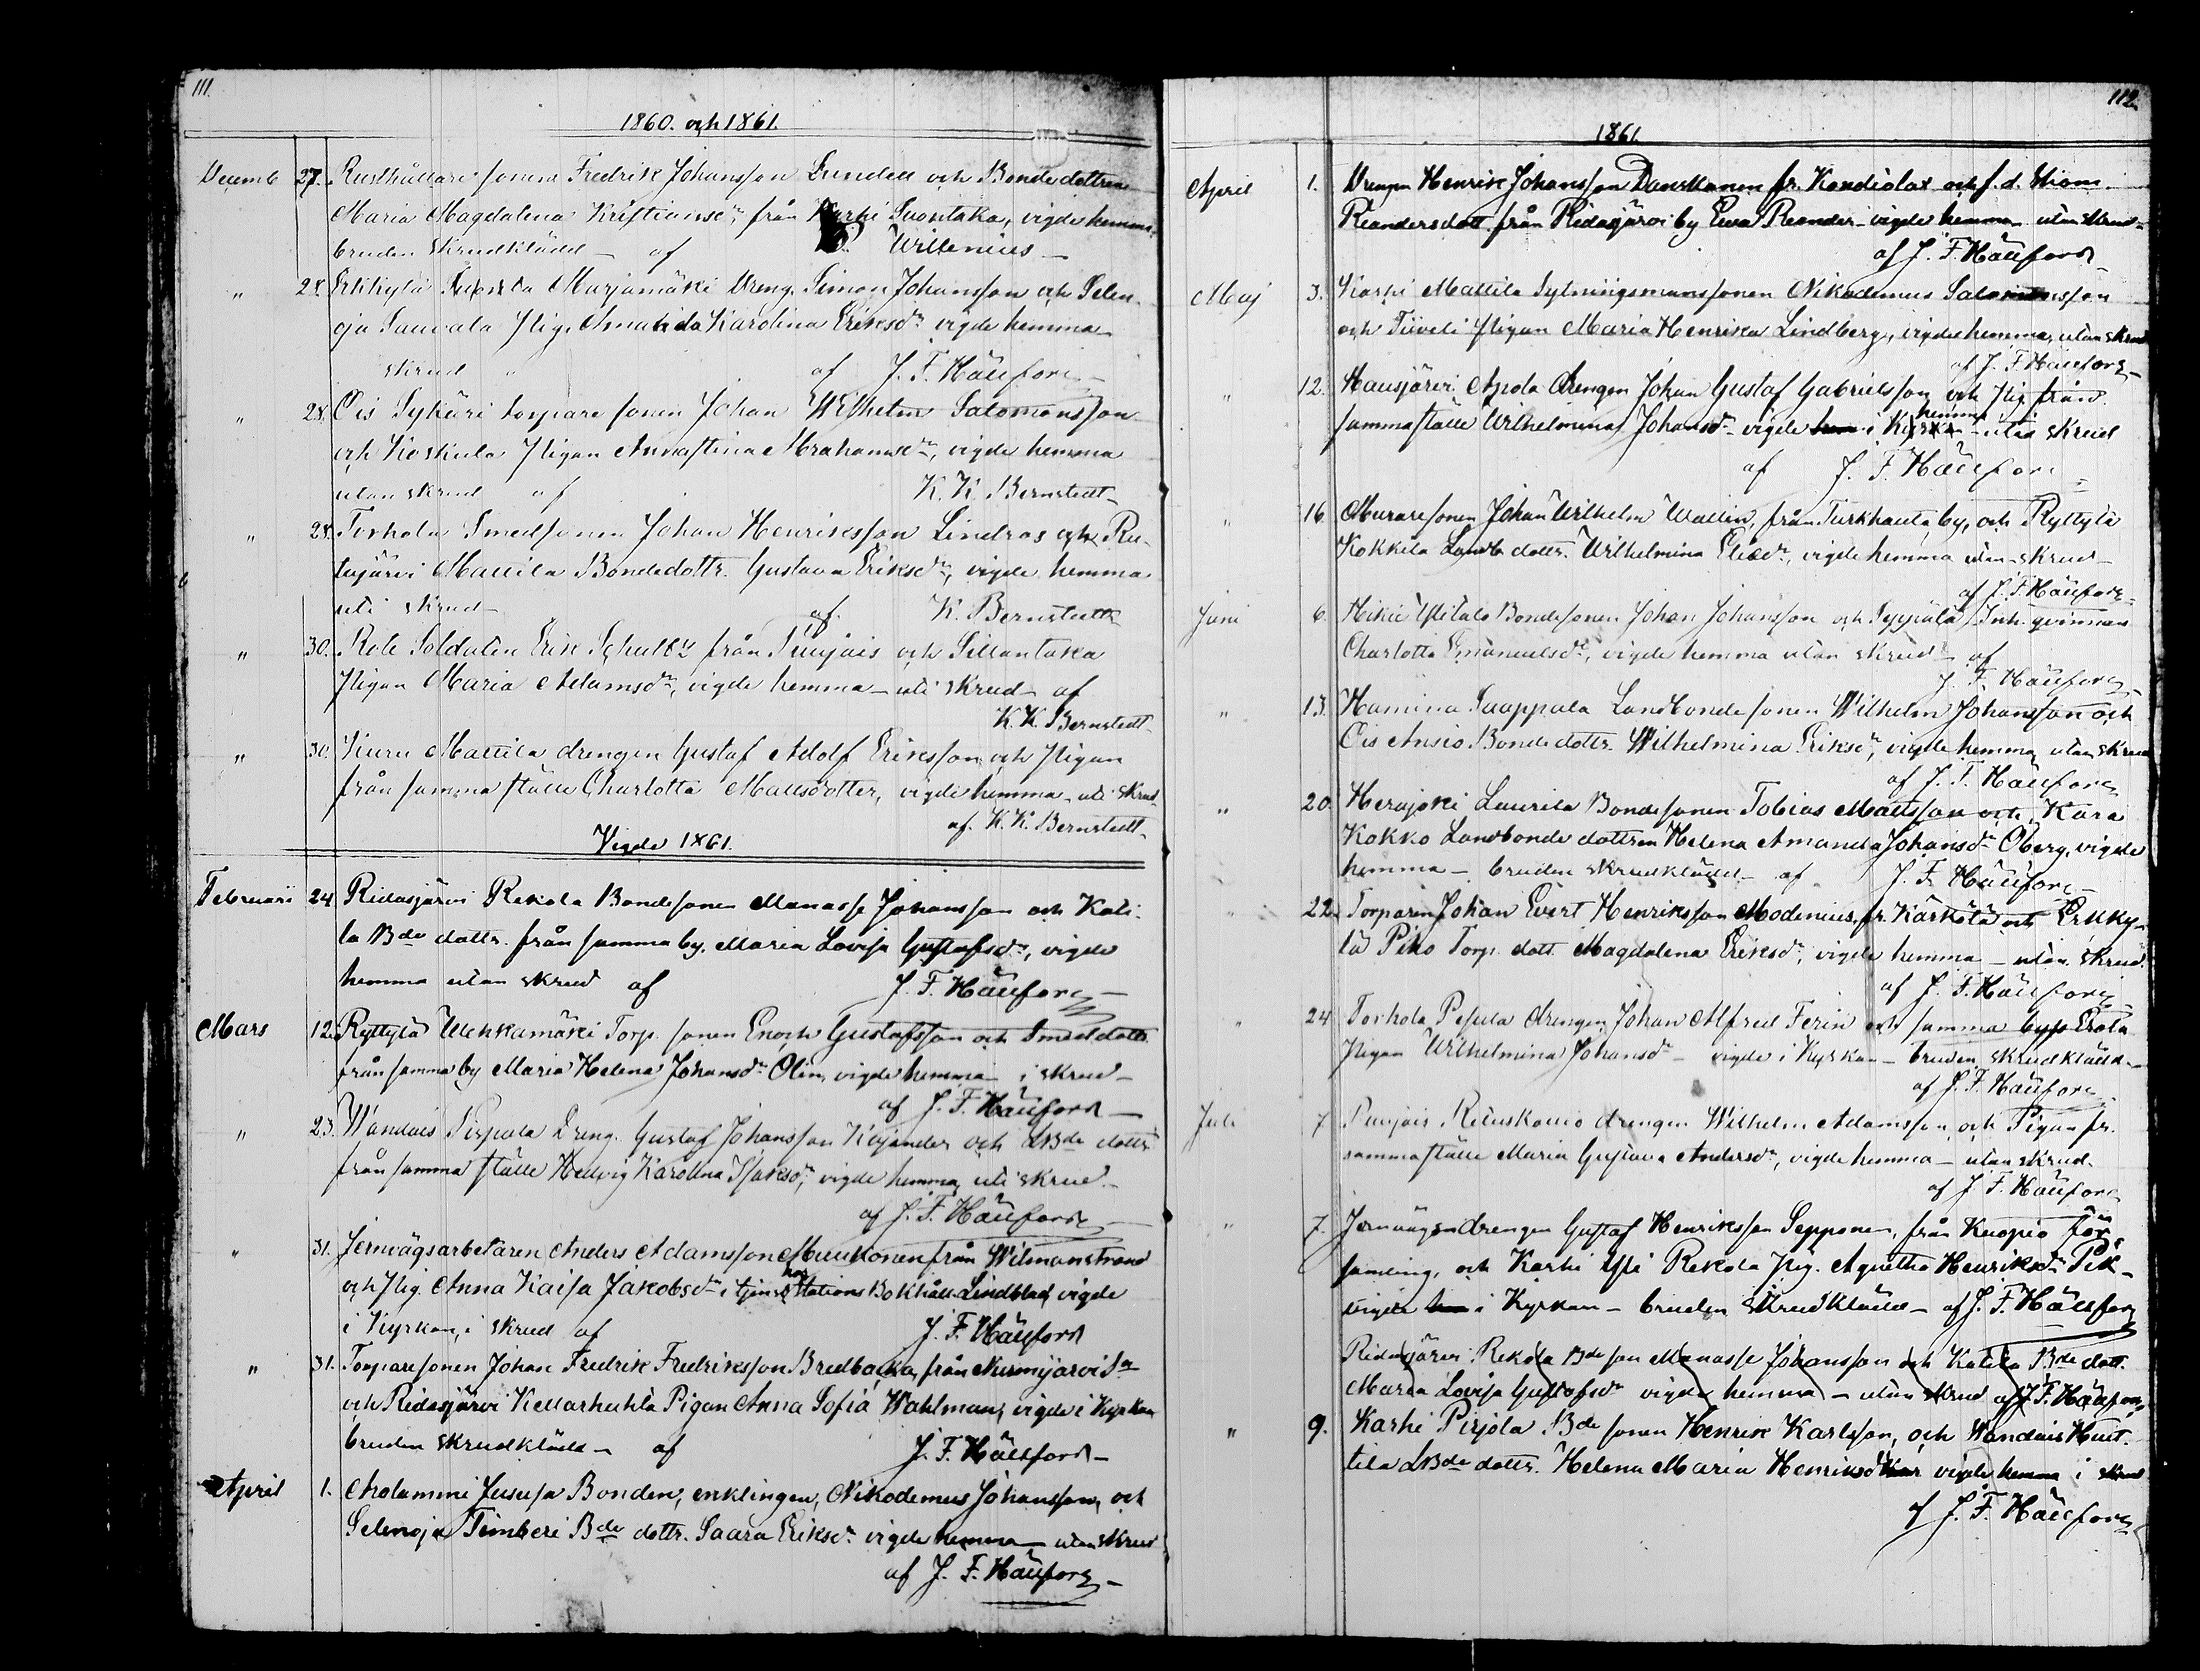 111.
1860. och 1861.
Decemb 27. Rusthållare sonen Fredrik Johansson Lundell och Bondedottren
Maria Magdalena Kristiansdr, från Karhi Suontaka, vigde hemma,
bruden skrudklädd - af Willenius -
" 28. Erkkylä Marjamäki Dreng. Simon Johansson och Selen-
oja Sauvala Pig. Amanda Karolina Eriksdr vigde hemma
skrud " af J. F. Hällfors -
" 28. Ois Sykäri torpare sonen Johan Wilhelm Salomonsson
och Koskula Pigan Annastina Abrahamsdr, vigde hemma
utan skrud af K. K. Bernstedt -
" 28. Torhola Smedsonen Johan Henriksson Lindros och Ru-
tajärvi Mattila Bondedottr. Gustava Eriksdr, vigde hemma
uti skrud - af K. Bernstedt
" 30. Rote Soldaten Erik Schultz från Puujais och Sillantaka
Pigan Maria Adamsdr, vigde hemma - uti skrud - af
K. K. Bernstedt -
" 30. Kuru Mattila drengen Gustaf Adolf Eriksson och Pigan
från samma ställe Charlotta Mattsdotter, vigde hemma - uti skrud
af. K. K. Bernstedt -
Vigde 1861.
Februari 24 Ridasjärvi Rekola Bondsonen Manasse Johansson och Kati-
la Bde dottr. från samma by, Maria Lovisa Gustafsdr, vigde
hemma utan skrud af J. F. Hällfors -
Mars 12. Ryttylä Uhkamäki Torp. sonen Enoch Gustafsson och Smeddottr.
från samma by Maria Helena Johansdr Olin, vigde hemma i skrud -
af J. F. Hällfors -
" 23. Wandais Pirpala Dreng. Gustaf Johansson Kajander och LBde dottr
från samma ställe Hedvig Karolina Isaksdr, vigde hemma, uti skrud -
af J. F. Hällfors -
" 31. Jernvägsarbetaren Anders Adamsson Muukonen från Wilmanstrand
och Pig. Anna Kaisa Jakobsdr i tjenst hos Stations Bokhåll. Lindblad, vigde
i Kyrkan, i skrud af J. F. Hällfors
" 31. Torparesonen Johan Fredrik Fredriksson Bredbacka, från Nurmijärvi Sn
och Ridasjärvi Kellarhuhta Pigan Anna Sofia Wahlman, vigde i Kyrkan
bruden skrudklädd - af J. F. Hällfors -
April 1. Arolammi Jususa Bonden, enklingen, Nikodemus Johansson, och
Selenoja Timberi Bde dottr. Saara Eriksdr vigde hemma - utan skrud
af J. F. Hällfors -
112.
1861.
April 1. Drengen Henrik Johansson Danskanen fr. Kondiolax och f. d.
Reandersdott från Ridasjärvi by Ewa Reander - vigde hemma utan skrud -
af J. F. Hällfors
Maj 3. Karhi Mattila Sytningsmanssonen Nikodemus Salomonsson
och Tiiveli Pigan Maria Henrika Lindberg, vigde hemma, utan skrud
af J. F. Hällfors -
" 12. Hausjärvi Apola drengen Johan Gustaf Gabrielsson och Pig från
samma ställe Wilhelmina Johansdr - vigde hem i Kyrkan hemma - utan skrud
af J. F. Hällfors
" 16. Muraresonen Johan Wilhelm Wallin, från Turkhauta by, och Ryttylä
Kokkila Landb dottr. Wilhelmina Eliedr, vigde hemma utan skrud -
af J. F. Hällfors
Juni 6. Hikiä Ylitalo Bondesonen Johan Johansson och Syypälä Inh. qvinnan
Charlotta Emanuelsdr, vigde hemma utan skrud - af
J. F. Hällfors
" 13. Hamina Paappala Landbondesonen Wilhelm Johansson och
Ois Ansio Bondedottr. Wilhelmina Eriksdr, vigde hemma, utan skrud
af J. F. Hällfors
" 20. Herajoki Laurila Bondesonen Tobias Mattsson och Kara
Kokko Landbonde dottren Helena Amanda Johansdr Öberg, vigde
hemma - bruden skrudklädd - af J. F. Hällfors -
" 22. Torparen Johan Evert Henriksson Modenius, fr. Kärkölä och Erkky-
lä Piko Torp. dott. Magdalena Eriksdr, vigde hemma - utan skrud.
af J. F. Hällfors
" 24 Torhola Pesula drengen Johan Alfred Ferin och samma bys Erola
Pigan Wilhelmina Johansdr - vigde i Kyrkan - bruden skrudklädd -
af J. F. Hällfors
Juli 7 Puujais Retuskoivo drengen Wilhelm Adamsson och Pigan fr.
samma ställe Maria Gustava Andersdr, vigde hemma - utan skrud.
af J. F. Hällfors
" 7. Jernvägsdrengen Gustaf Henriksson Sepponen, från Kuopio För-
samling, och Karhi Yli Rekola Pig. Agnetha Henriksdr Pik -
vigde hem i Kyrkan - bruden skrudklädd - af J. F. Hällfors
Ridasjärvi Rekola Bde son Manasse Johansson och Katila Bde dott.
Maria Lovisa Gustafsdr vigde hemma - utan skrud af J. F. Hällfors
" 9. Karhi Pirjola Bde sonen Henrik Karlsson, och Wandais Hut-
tila LBde dottr. Helena Maria Henriksdr vigde hemma i skrud
af J. F. Hällfors